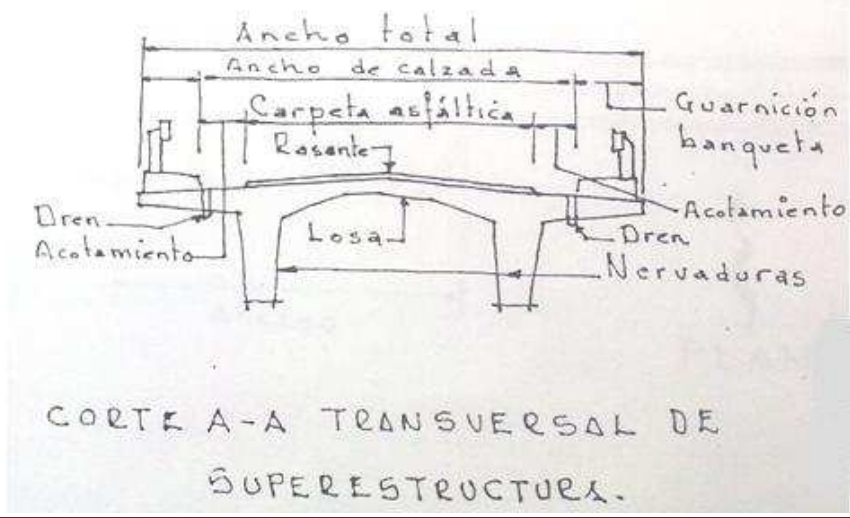 Ancho total
Ancho de calzada
Carpeta asfáltica
Guarnición
banqueta
Rasante
Dren
Acotamiento
Losa
Acotamiento
Dren
Nervaduras
CORTE A-A TRANSVERSAL DE
SUPERESTRUCTURA.